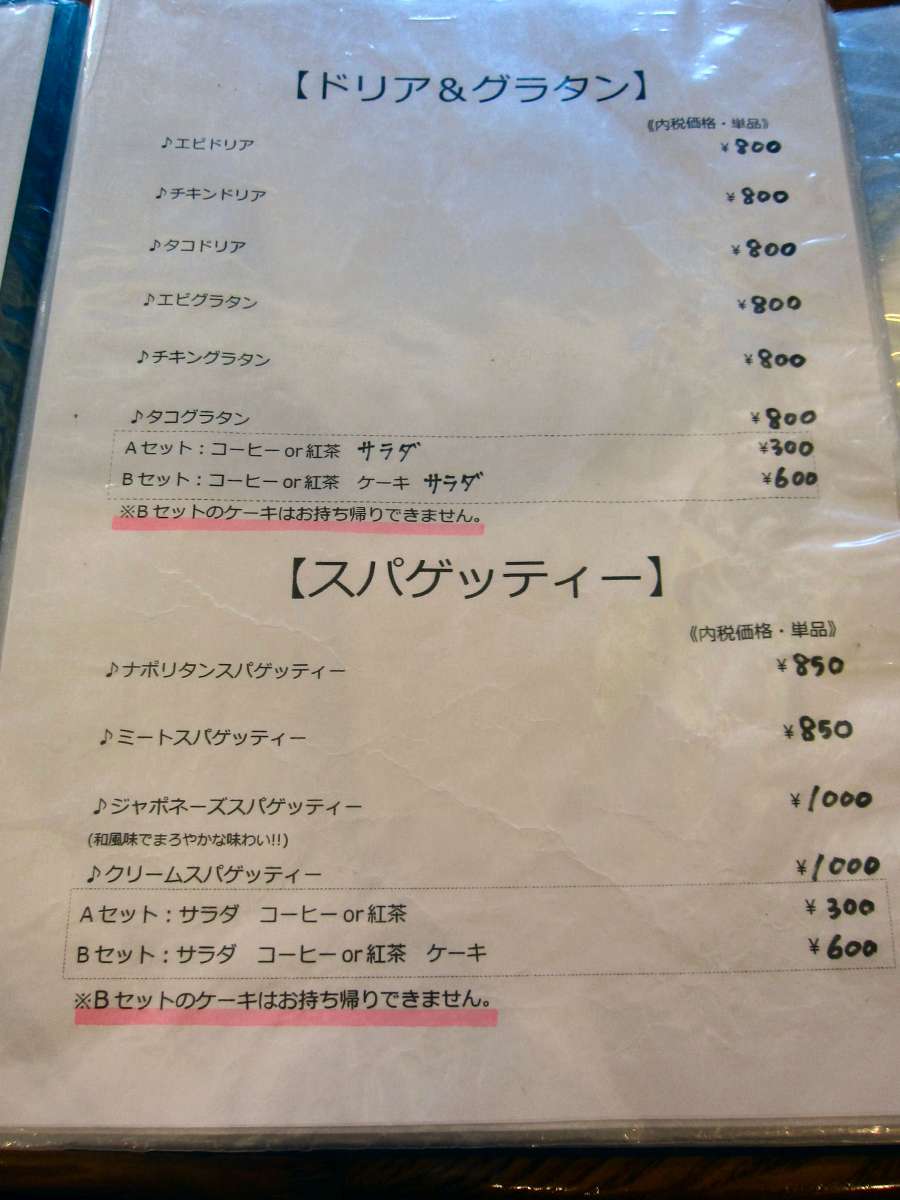 【ドリア＆グラタン】
《内税価格・単品》
♪エビドリア ￥800
♪チキンドリア ￥800
♪タコドリア ￥800
♪エビグラタン ￥800
♪チキングラタン ￥800
♪タコグラタン ￥800
Aセット：コーヒーor紅茶 サラダ ￥300
Bセット：コーヒーor紅茶 ケーキ サラダ ￥600
※Bセットのケーキはお持ち帰りできません。
【スパゲッティー】
《内税価格・単品》
♪ナポリタンスパゲッティー ￥850
♪ミートスパゲッティー ￥850
♪ジャポネーズスパゲッティー ￥1000
(和風味でまろやかな味わい!!)
♪クリームスパゲッティー ￥1000
Aセット：サラダ コーヒーor紅茶 ￥300
Bセット：サラダ コーヒーor紅茶 ケーキ ￥600
※Bセットのケーキはお持ち帰りできません。